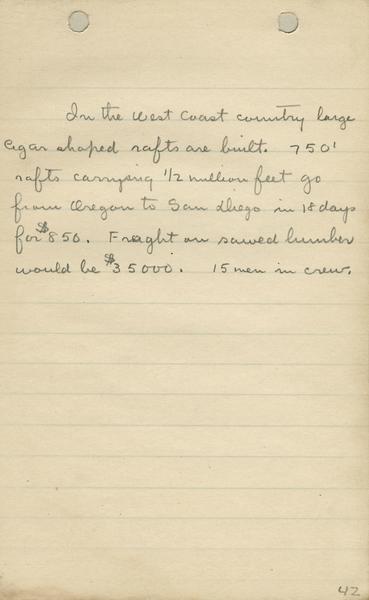 In the West Coast country large
cigar shaped rafts are built. 750'
rafts carrying 1/2 million feet go
from Oregon to San Diego in 18 days
for $850. Fraght on sawed lumber
would be $35000. 15 men in crew.
42